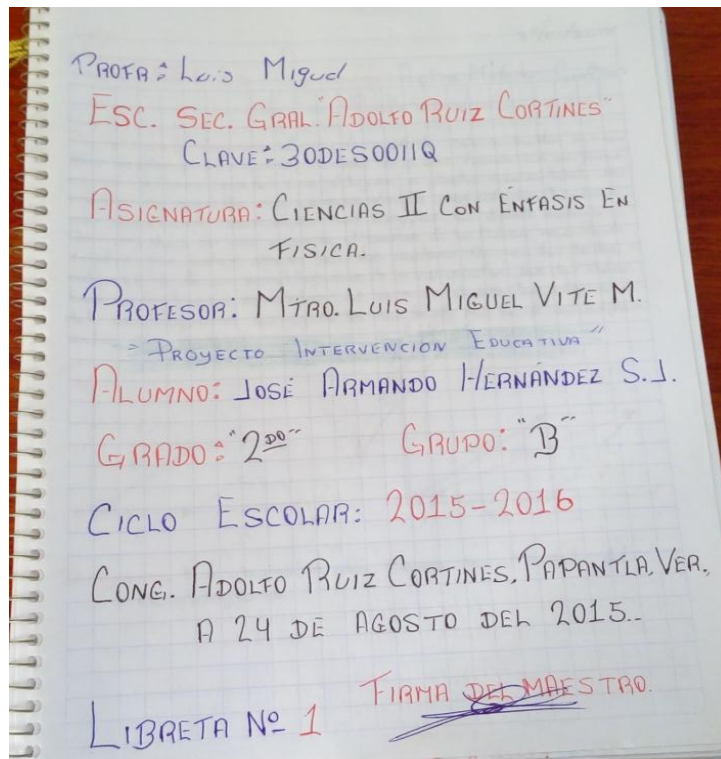 PROFR: Luis Miguel
ESC. SEC. GRAL. "ADOLFO RUIZ CORTINES"
CLAVE: 30DES0011Q
ASIGNATURA: CIENCIAS II CON ÉNFASIS EN
FISICA.
PROFESOR: MTRO. LUIS MIGUEL VITE M.
"PROYECTO INTERVENCION EDUCATIVA"
ALUMNO: JOSÉ ARMANDO HERNÁNDEZ S.J.
GRADO: "2DO" GRUPO: "B"
CICLO ESCOLAR: 2015-2016
CONG. ADOLFO RUIZ CORTINES, PAPANTLA, VER.,
A 24 DE AGOSTO DEL 2015..
FIRMA DEL MAESTRO.
LIBRETA Nº 1